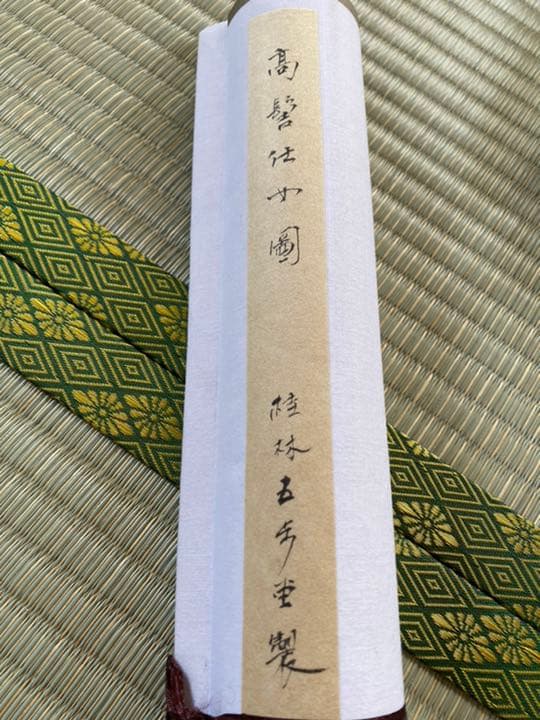 高髻仕女圖
桂林五步堂製